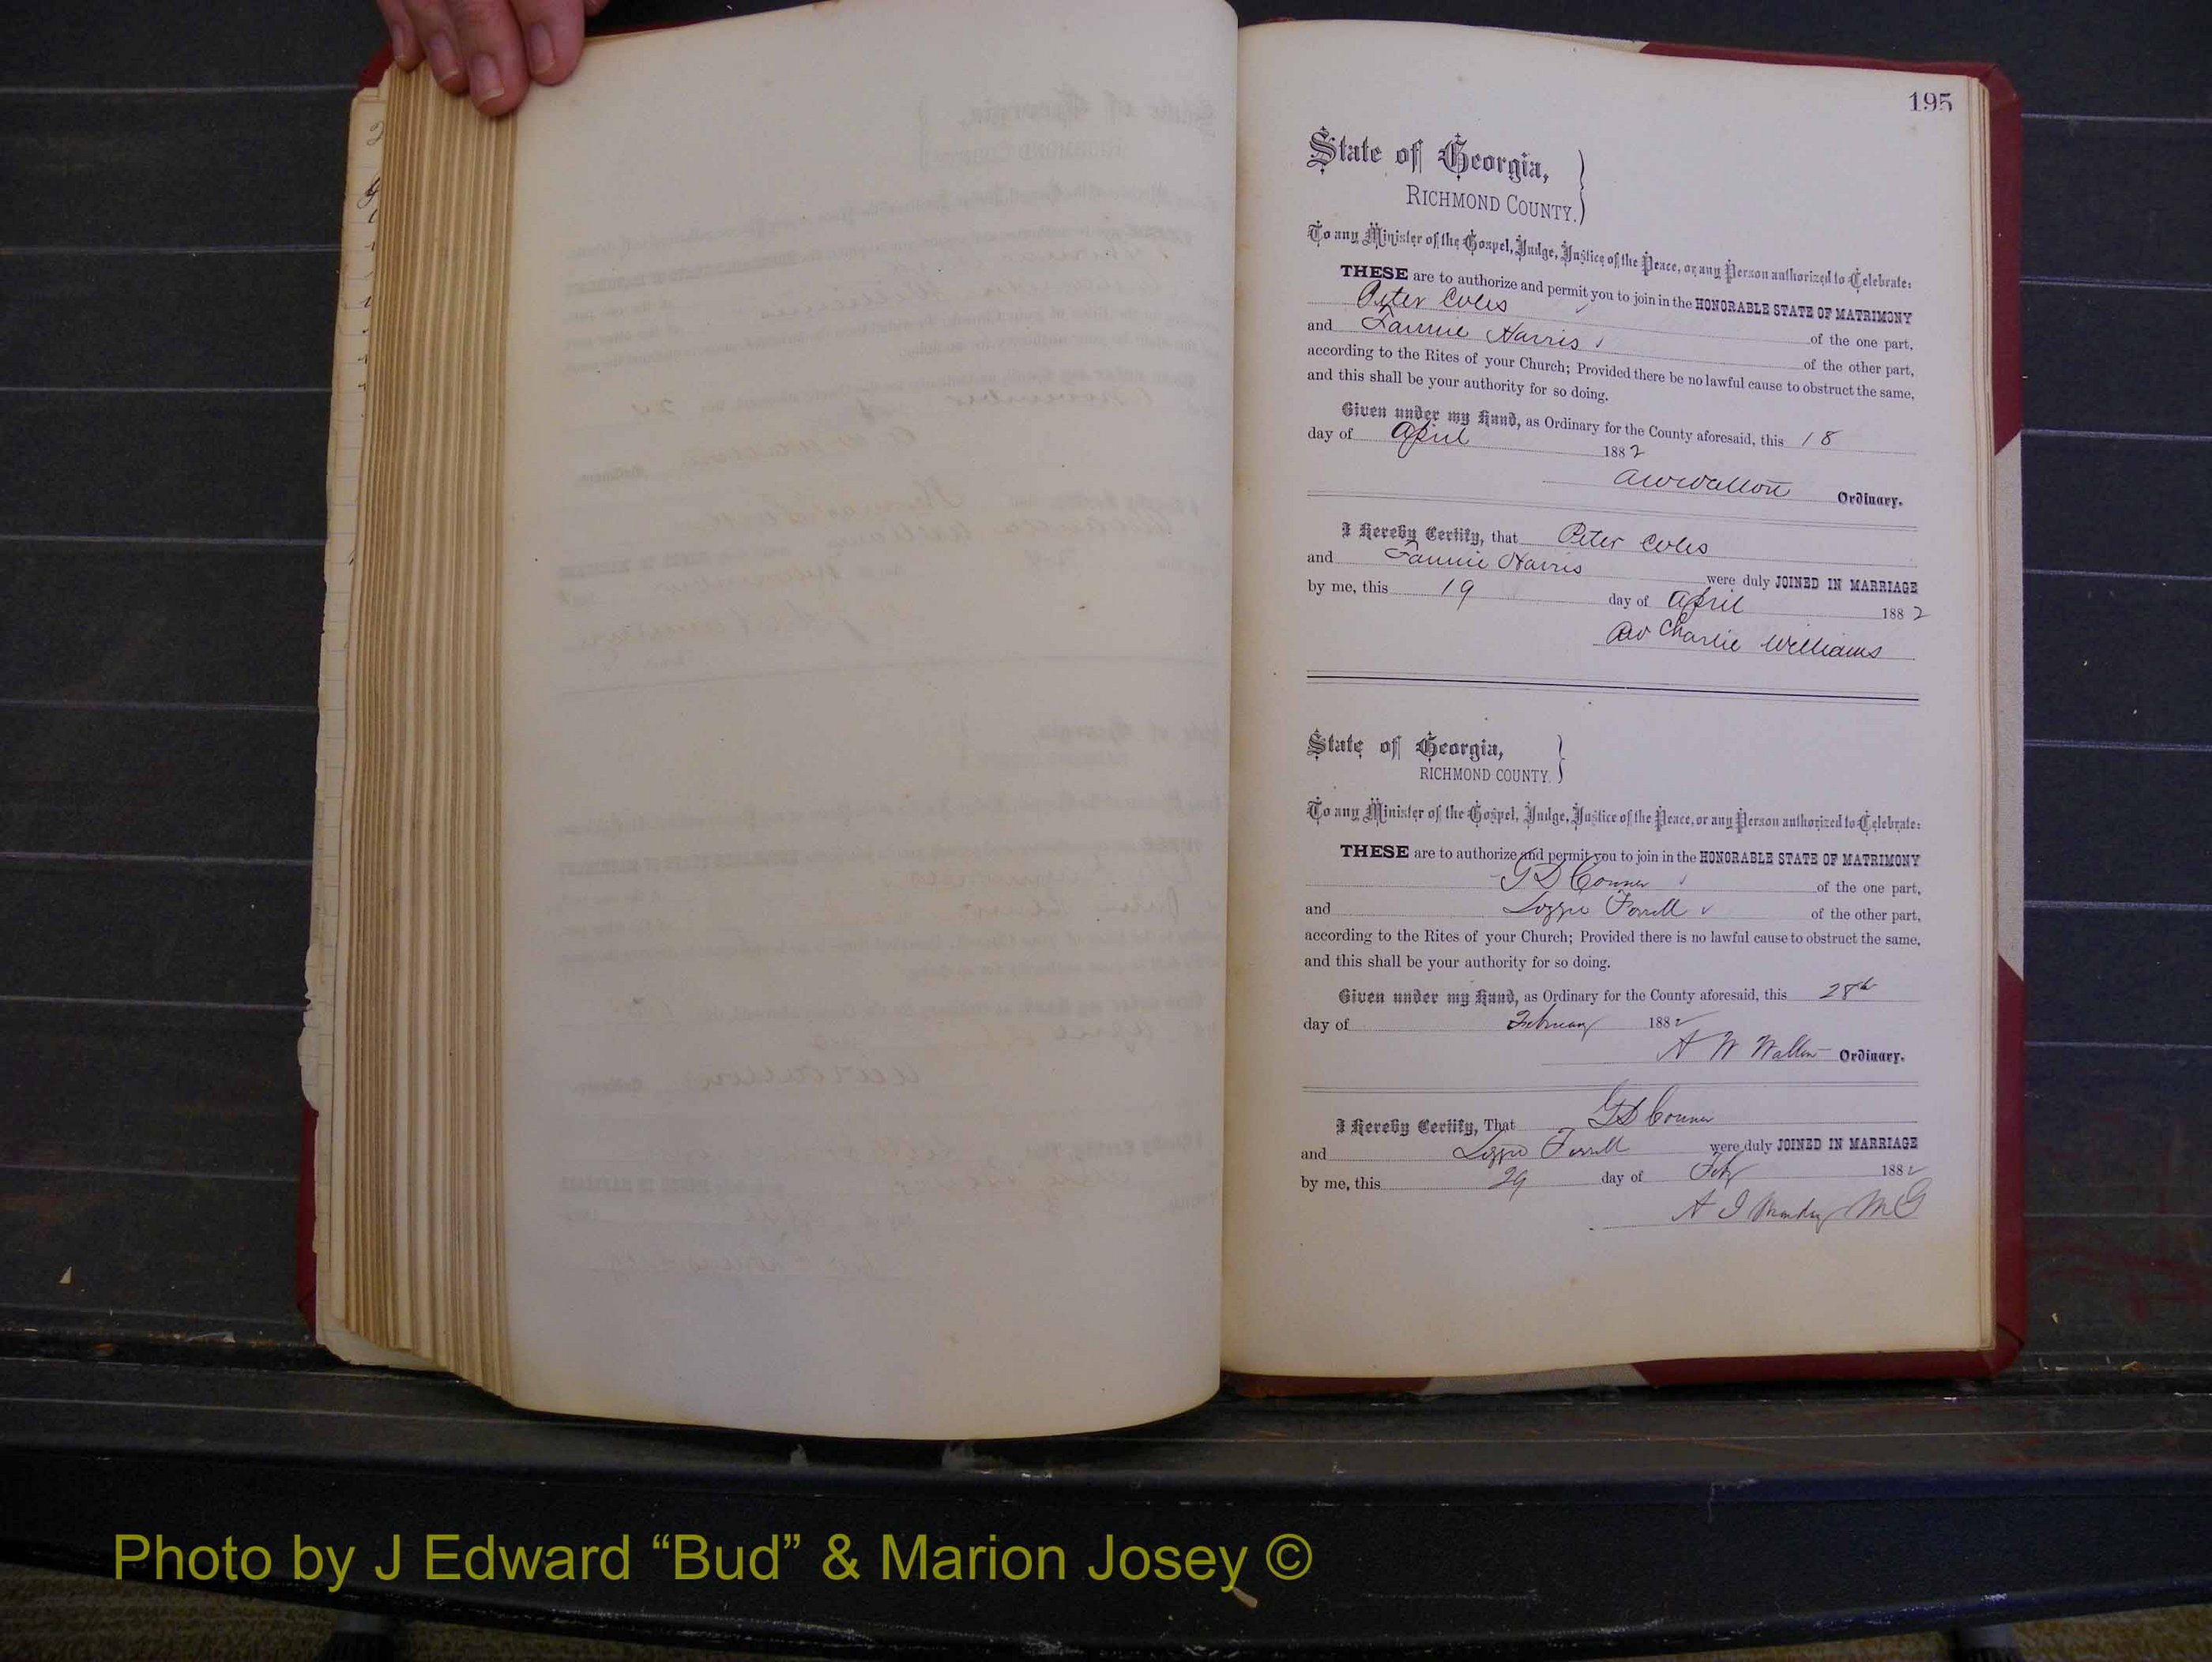 195
State of Georgia,
RICHMOND COUNTY.
To any Minister of the Gospel, Judge, Justice of the Peace, or any Person authorized to Celebrate:
THESE are to authorize and permit you to join in the HONORABLE STATE OF MATRIMONY
Peter Coles of the one part,
and Fannie Harris of the other part,
according to the Rites of your Church; Provided there be no lawful cause to obstruct the same,
and this shall be your authority for so doing.
Given under my Hand, as Ordinary for the County aforesaid, this 18
day of April 1882
AW Walton Ordinary.
I Hereby Certify, that Peter Coles
and Fannie Harris were duly JOINED IN MARRIAGE
by me, this 19 day of April 1882
Charlie Williams
State of Georgia,
RICHMOND COUNTY.
To any Minister of the Gospel, Judge, Justice of the Peace, or any Person authorized to Celebrate:
THESE are to authorize and permit you to join in the HONORABLE STATE OF MATRIMONY
G D Conner of the one part,
and Lizzie of the other part,
according to the Rites of your Church; Provided there is no lawful cause to obstruct the same,
and this shall be your authority for so doing.
Given under my Hand, as Ordinary for the County aforesaid, this 28th
day of February 1882
A W Walton Ordinary.
I Hereby Certify, That G D Conner
and Lizzie were duly JOINED IN MARRIAGE
by me, this 29 day of Feby 1882
A J M G
Photo by J Edward “Bud” & Marion Josey ©